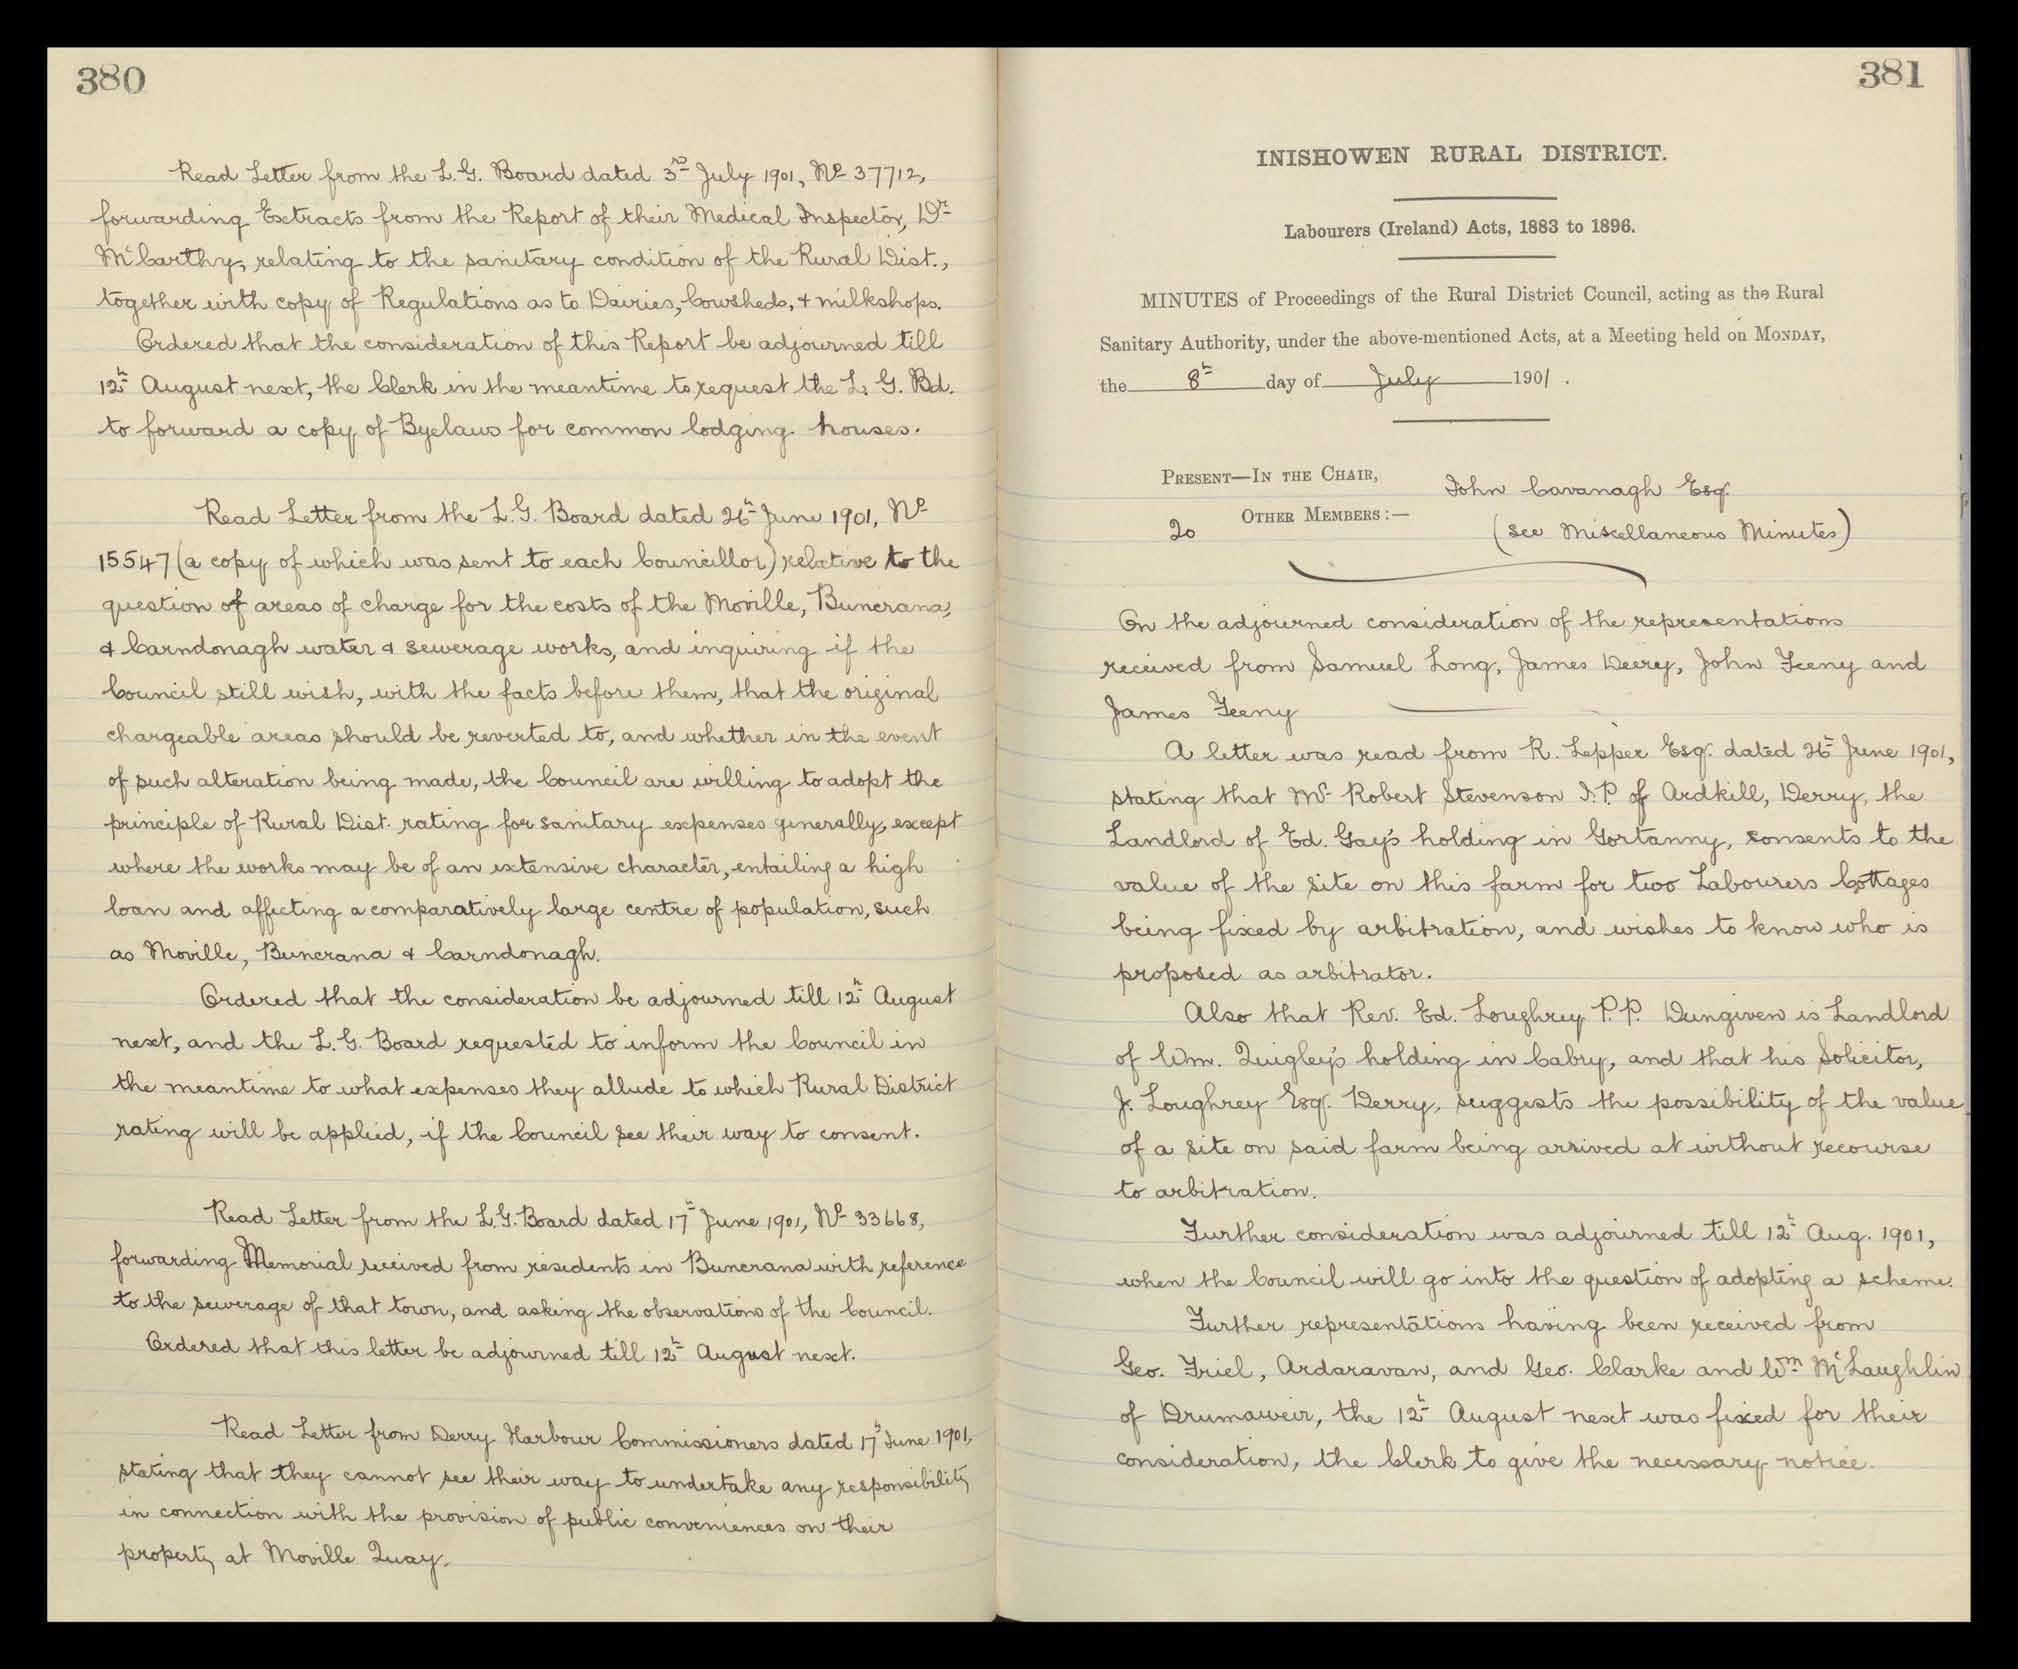 380
Read Letter from the L. G. Board dated 3rd July 1901, No 37712,
forwarding Extracts from the Report of their Medical Inspector, Dr
McCarthy, relating to the sanitary condition of the Rural Dist.,
together with copy of Regulations as to Dairies, Cowsheds, & milkshops.
Ordered that the consideration of this Report be adjourned till
12th August next, the Clerk in the meantime to request the L. G. Bd.
to forward a copy of Byelaws for common lodging houses.
Read Letter from the L. G. Board dated 26th June 1901, No
15547 (a copy of which was sent to each Councillor) relative to the
question of areas of charge for the costs of the Moville, Buncrana,
& Carndonagh water & sewerage works, and inquiring if the
Council still wish, with the facts before them, that the original
chargeable areas should be reverted to, and whether in the event
of such alteration being made, the Council are willing to adopt the
principle of Rural Dist. rating for sanitary expenses generally, except
where the works may be of an extensive character, entailing a high
loan and affecting a comparatively large centre of population, such
as Moville, Buncrana & Carndonagh.
Ordered that the consideration be adjourned till 12th August
next, and the L. G. Board requested to inform the Council in
the meantime to what expenses they allude to which Rural District
rating will be applied, if the Council see their way to consent.
Read Letter from the L. G. Board dated 17th June 1901, No 33668,
forwarding Memorial received from residents in Buncrana with reference
to the sewerage of that town, and asking the observations of the Council.
Ordered that this letter be adjourned till 12th August next.
Read Letter from Derry Harbour Commissioners dated 17th June 1901,
stating that they cannot see their way to undertake any responsibility
in connection with the provision of public conveniences on their
property at Moville Quay.
381
INISHOWEN RURAL DISTRICT.
Labourers (Ireland) Acts, 1883 to 1896.
MINUTES of Proceedings of the Rural District Council, acting as the Rural
Sanitary Authority, under the above-mentioned Acts, at a Meeting held on MONDAY,
the 8th day of July 1901.
PRESENT—IN THE CHAIR, John Cavanagh Esq.
20 OTHER MEMBERS:— (see Miscellaneous Minutes)
On the adjourned consideration of the representations
received from Samuel Long, James Deery, John Feeny and
James Feeny
A letter was read from R. Lepper Esq. dated 26th June 1901,
stating that Mr Robert Stevenson J.P. of Ardkill, Derry, the
Landlord of Ed. Gay's holding in Gortanny, consents to the
value of the site on this farm for two Labourers Cottages
being fixed by arbitration, and wishes to know who is
proposed as arbitrator.
Also that Rev. Ed. Loughrey P.P. Dungiven is Landlord
of Wm. Quigley's holding in Cabry, and that his Solicitor,
J. Loughrey Esq. Derry, suggests the possibility of the value
of a site on said farm being arrived at without recourse
to arbitration.
Further consideration was adjourned till 12th Aug. 1901,
when the Council will go into the question of adopting a scheme.
Further representations having been received from
Geo. Friel, Ardaravan, and Geo. Clarke and Wm McLaughlin
of Drumaweir, the 12th August next was fixed for their
consideration, the Clerk to give the necessary notice.